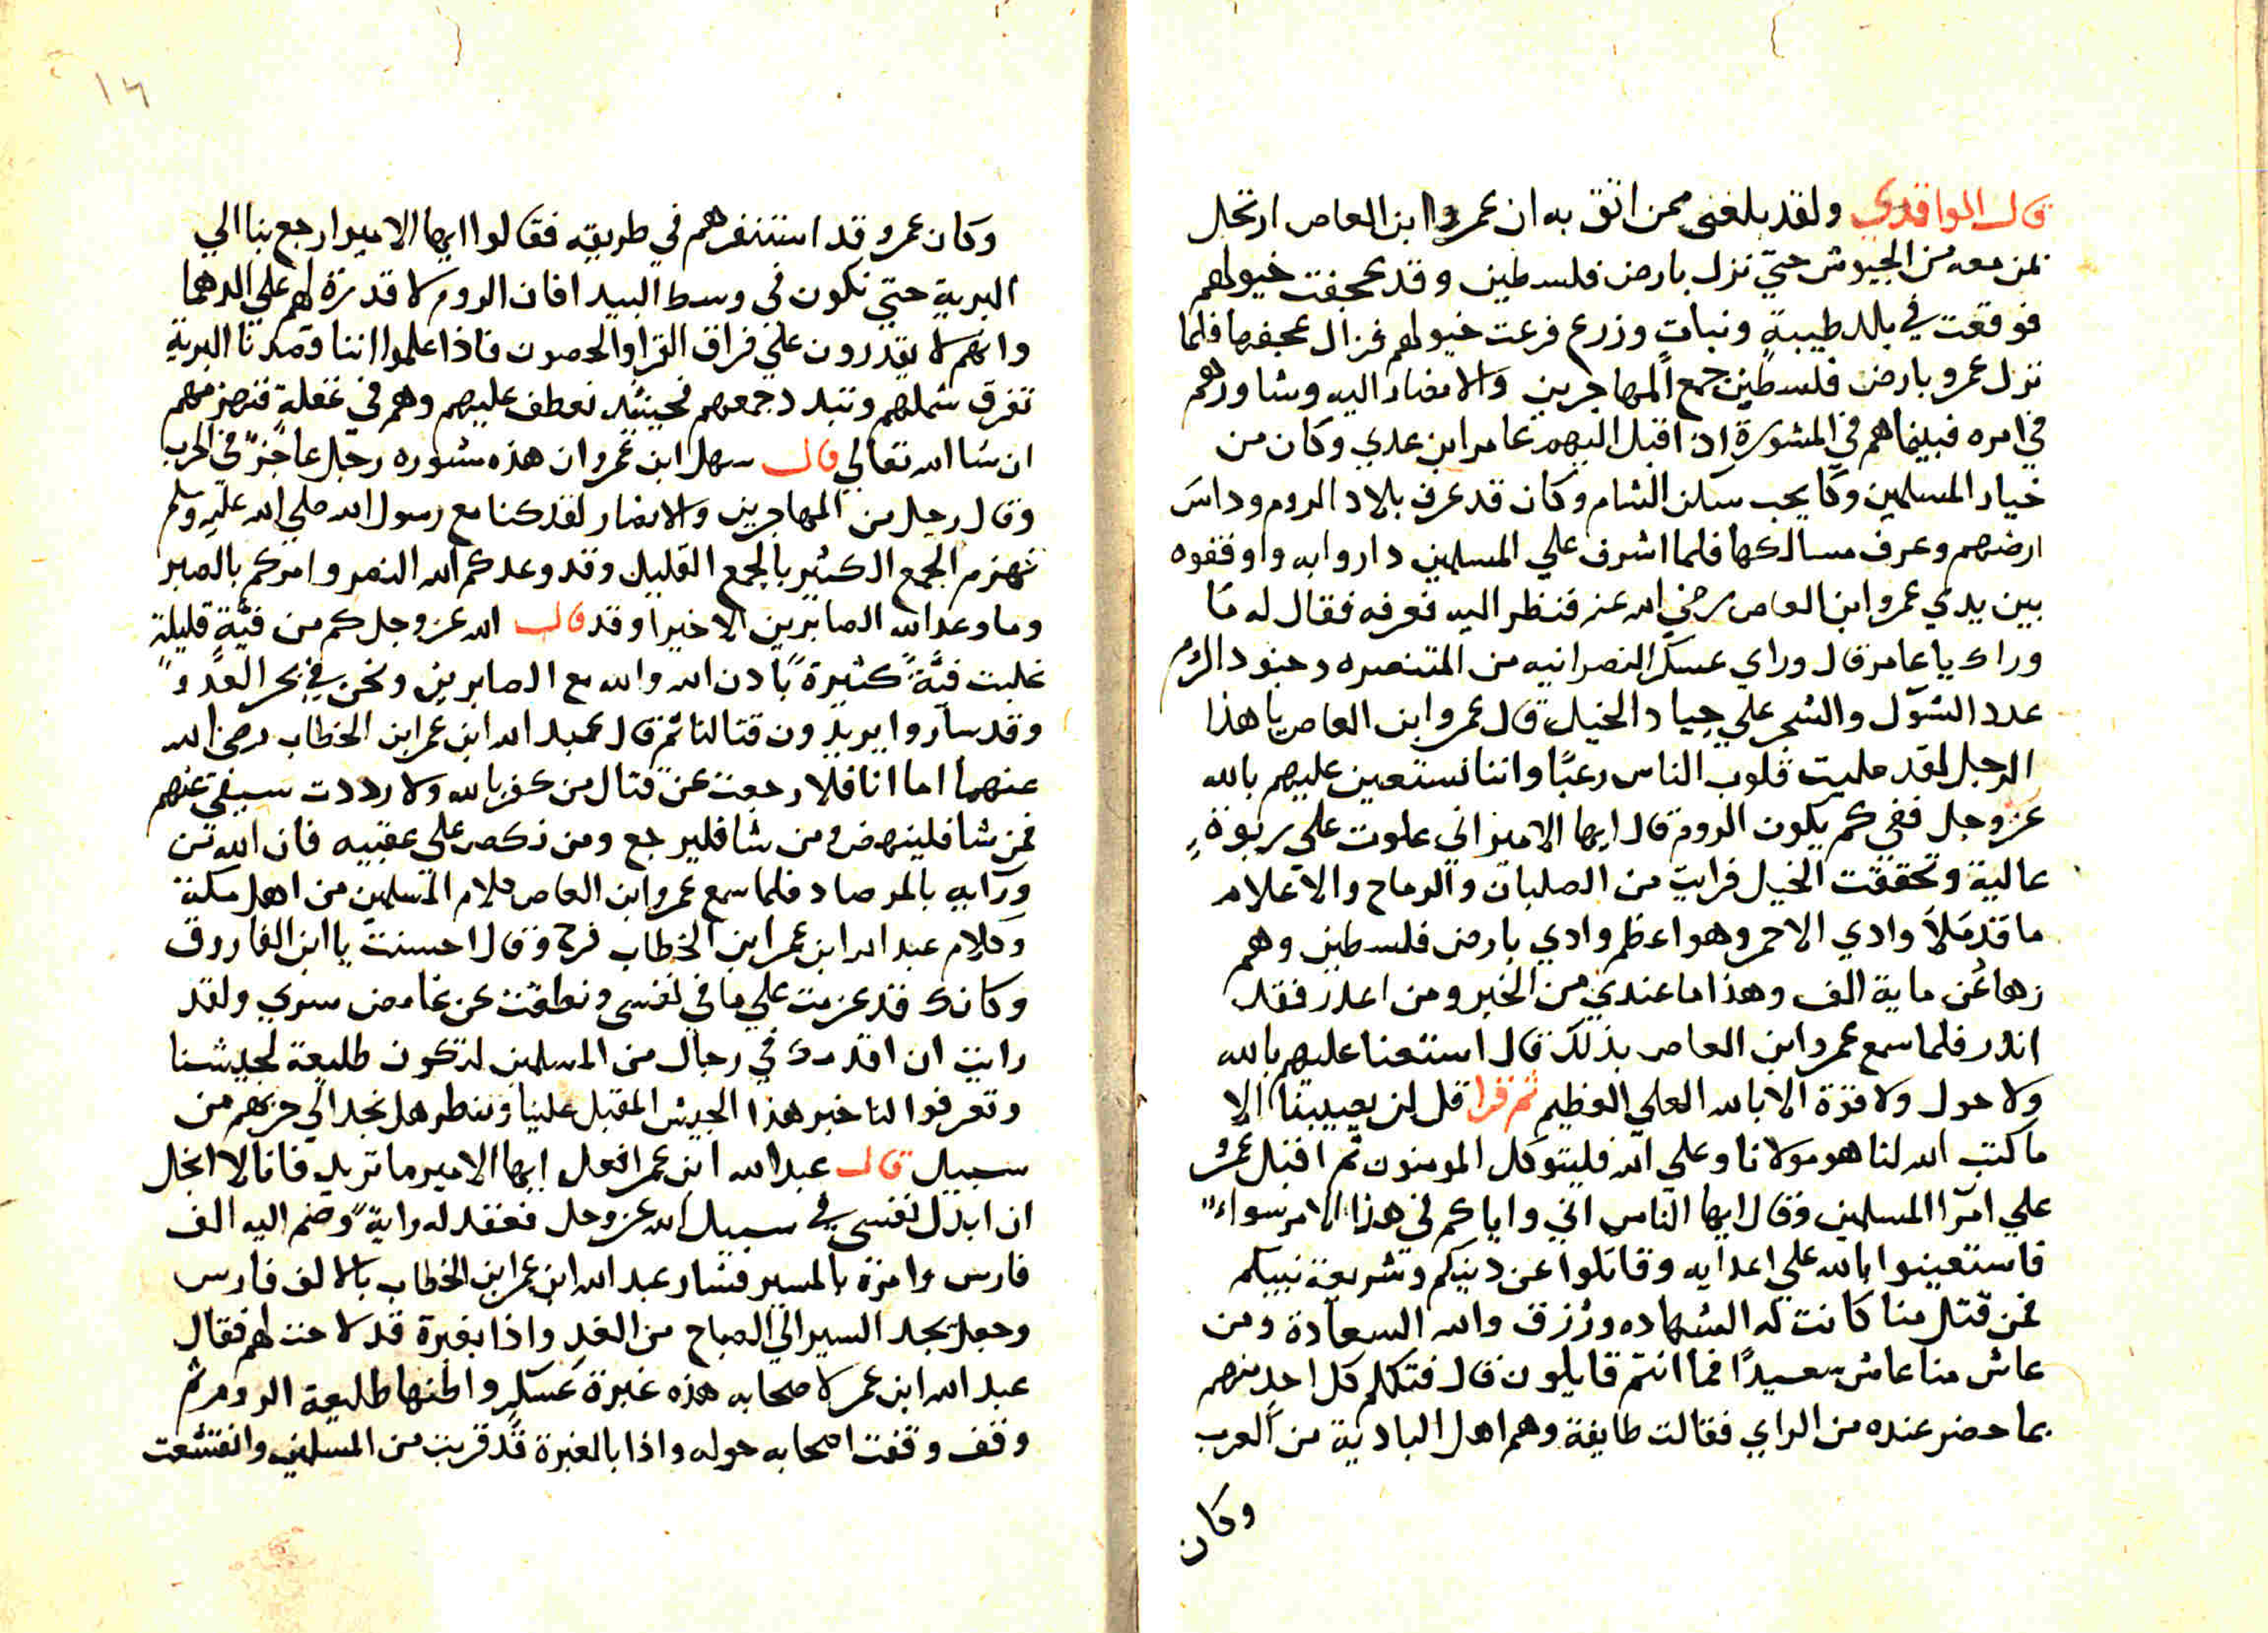 قال الواقدي ولقد بلغني ممن اثق به ان عمروا ابن العاص ارتحل
بمن معه من الجيوش حتي نزل بارض فلسطين وقد عجفت خيولهم
فوقعت في بلد طيبةٍ ونبات وزرع فرعت خيولهم فزال عجفها فلما
نزل عمرو بارض فلسطين جمع المهاجرين والانصار اليه وشاورهم
في امره فبينما هم في المشورة اذ اقبل اليهم عامر ابن عدي وكان من
خيار المسلمين وكا يحب سكن الشام وكان قد عرف بلاد الروم وداس
ارضهم وعرف مسالكها فلما اشرف علي المسلمين داروا به واوقفوه
بين يدي عمرو ابن العاص رضي الله عنه فنظر اليه فعرفه فقال له ما
وراك يا عامر قال وراي عسكر النصرانيه من المتنصره وجنود الروم
عدد الشول والشجر علي جياد الخيل قال عمرو ابن العاص يا هذا
الرجل لقد مليت قلوب الناس رعبًا واننا نستعين عليهم بالله
عز وجل ففي كم يكون الروم قال ايها الامير اني علوت علي ربوةٍ
عالية وتحققت الخيل فرايت من الصلبان والرماح والاعلام
ما قد ملأ وادي الاحمر وهو اعظم وادي بارض فلسطين وهم
زها عن ماية الف وهذا ما عندي من الخبر ومن اعذر فقد
انذر فلما سمع عمرو ابن العاص بذلك قال استعنا عليهم بالله
ولا حول ولا قوة الا بالله العلي العظيم ثم قرا قل لن يصيبنا الا
ما كتب الله لنا هو مولانا وعلي الله فليتوكل المومنون ثم اقبل عمرو
علي امرا المسلمين وقال ايها الناس اني واياكم في هذا الامر سواءً
فاستعينوا بالله علي اعدايه وقاتلوا عن دينكم وشريعة نبيكم
فمن قتل منا كانت له الشهاده ورُزق والله السعادة ومن
عاش منا عاش سعيدًا فما انتم قايلون قال فتكلم كل احدٍ منهم
بما حضر عنده من الراي فقالت طايفة وهم اهل البادية من العرب
وكان
١٦
وكان عمرو قد استنفرهم في طريقه فقالوا ايها الامير ارجع بنا الي
البرية حتي نكون في وسط البيدا فان الروم لا قدرة لهم علي الدهما
وانهم لا يقدرون علي فراق القرا والحصون فاذا علموا اننا قصدنا البرية
تفرق شملهم وتبدد جمعهم فحينئد نعطف عليهم وهم في غفلةٍ فنهزمهم
ان شا الله تعالي قال سهل ابن عمرو ان هذه مشوره رجل عاجزٌ في الحرب
وقال رجل من المهاجرين والانصار لقد كنا مع رسول الله صلي الله عليه وسلم
نهزم الجمع الكثير بالجمع القليل وقد وعدكم الله النصر وامركم بالصبر
وما وعد الله الصابرين الا خيرا وقد قال الله عز وجل كم من فئةٍ قليلةٍ
غلبت فئةً كثيرةً بادن الله والله مع الصابرين ونحن في نحر العدو
وقد ساروا يريدون قتالنا ثم قال عبد الله ابن عمر ابن الخطاب رضي الله
عنهما اما انا فلا رجعت عن قتال من كفر بالله ولا رددت سيفي عنهم
فمن شا فلينهض ومن شا فليرجع ومن نكص علي عقبيه فان الله من
ورآيه بالمرصاد فلما سمع عمرو ابن العاص كلام المسلمين من اهل مكة
وكلام عبد الله ابن عمر ابن الخطاب فرح وقال احسنت يا ابن الفاروق
وكانك قد عزمت علي ما في نفسي ونطقت عن غامض سري ولقد
رايت ان اقدمك في رجال من المسلمين لتكون طليعة لجيشنا
وتعرفوا لنا خبر هذا الجيش المقبل علينا وننظر هل نجد الي حربهم من
سبيل قال عبد الله ابن عمر افعل ايها الامير ما تريد فانا لا ابخل
ان ابذل نفسي في سبيل الله عز وجل فعقد له رايةً وضم اليه الف
فارس وامره بالمسير فسار عبد الله ابن عمر ابن الخطاب بالالف فارس
وجعل يجد السير الي الصباح من الغد واذا بغبرة قد لاحت لهم فقال
عبد الله ابن عمر لاصحابه هذه غبرة عسكر واظنها طليعة الروم ثم
وقف وقفت اصحابه حوله واذا بالغبرة قد قربت من المسلمين وانقشعت